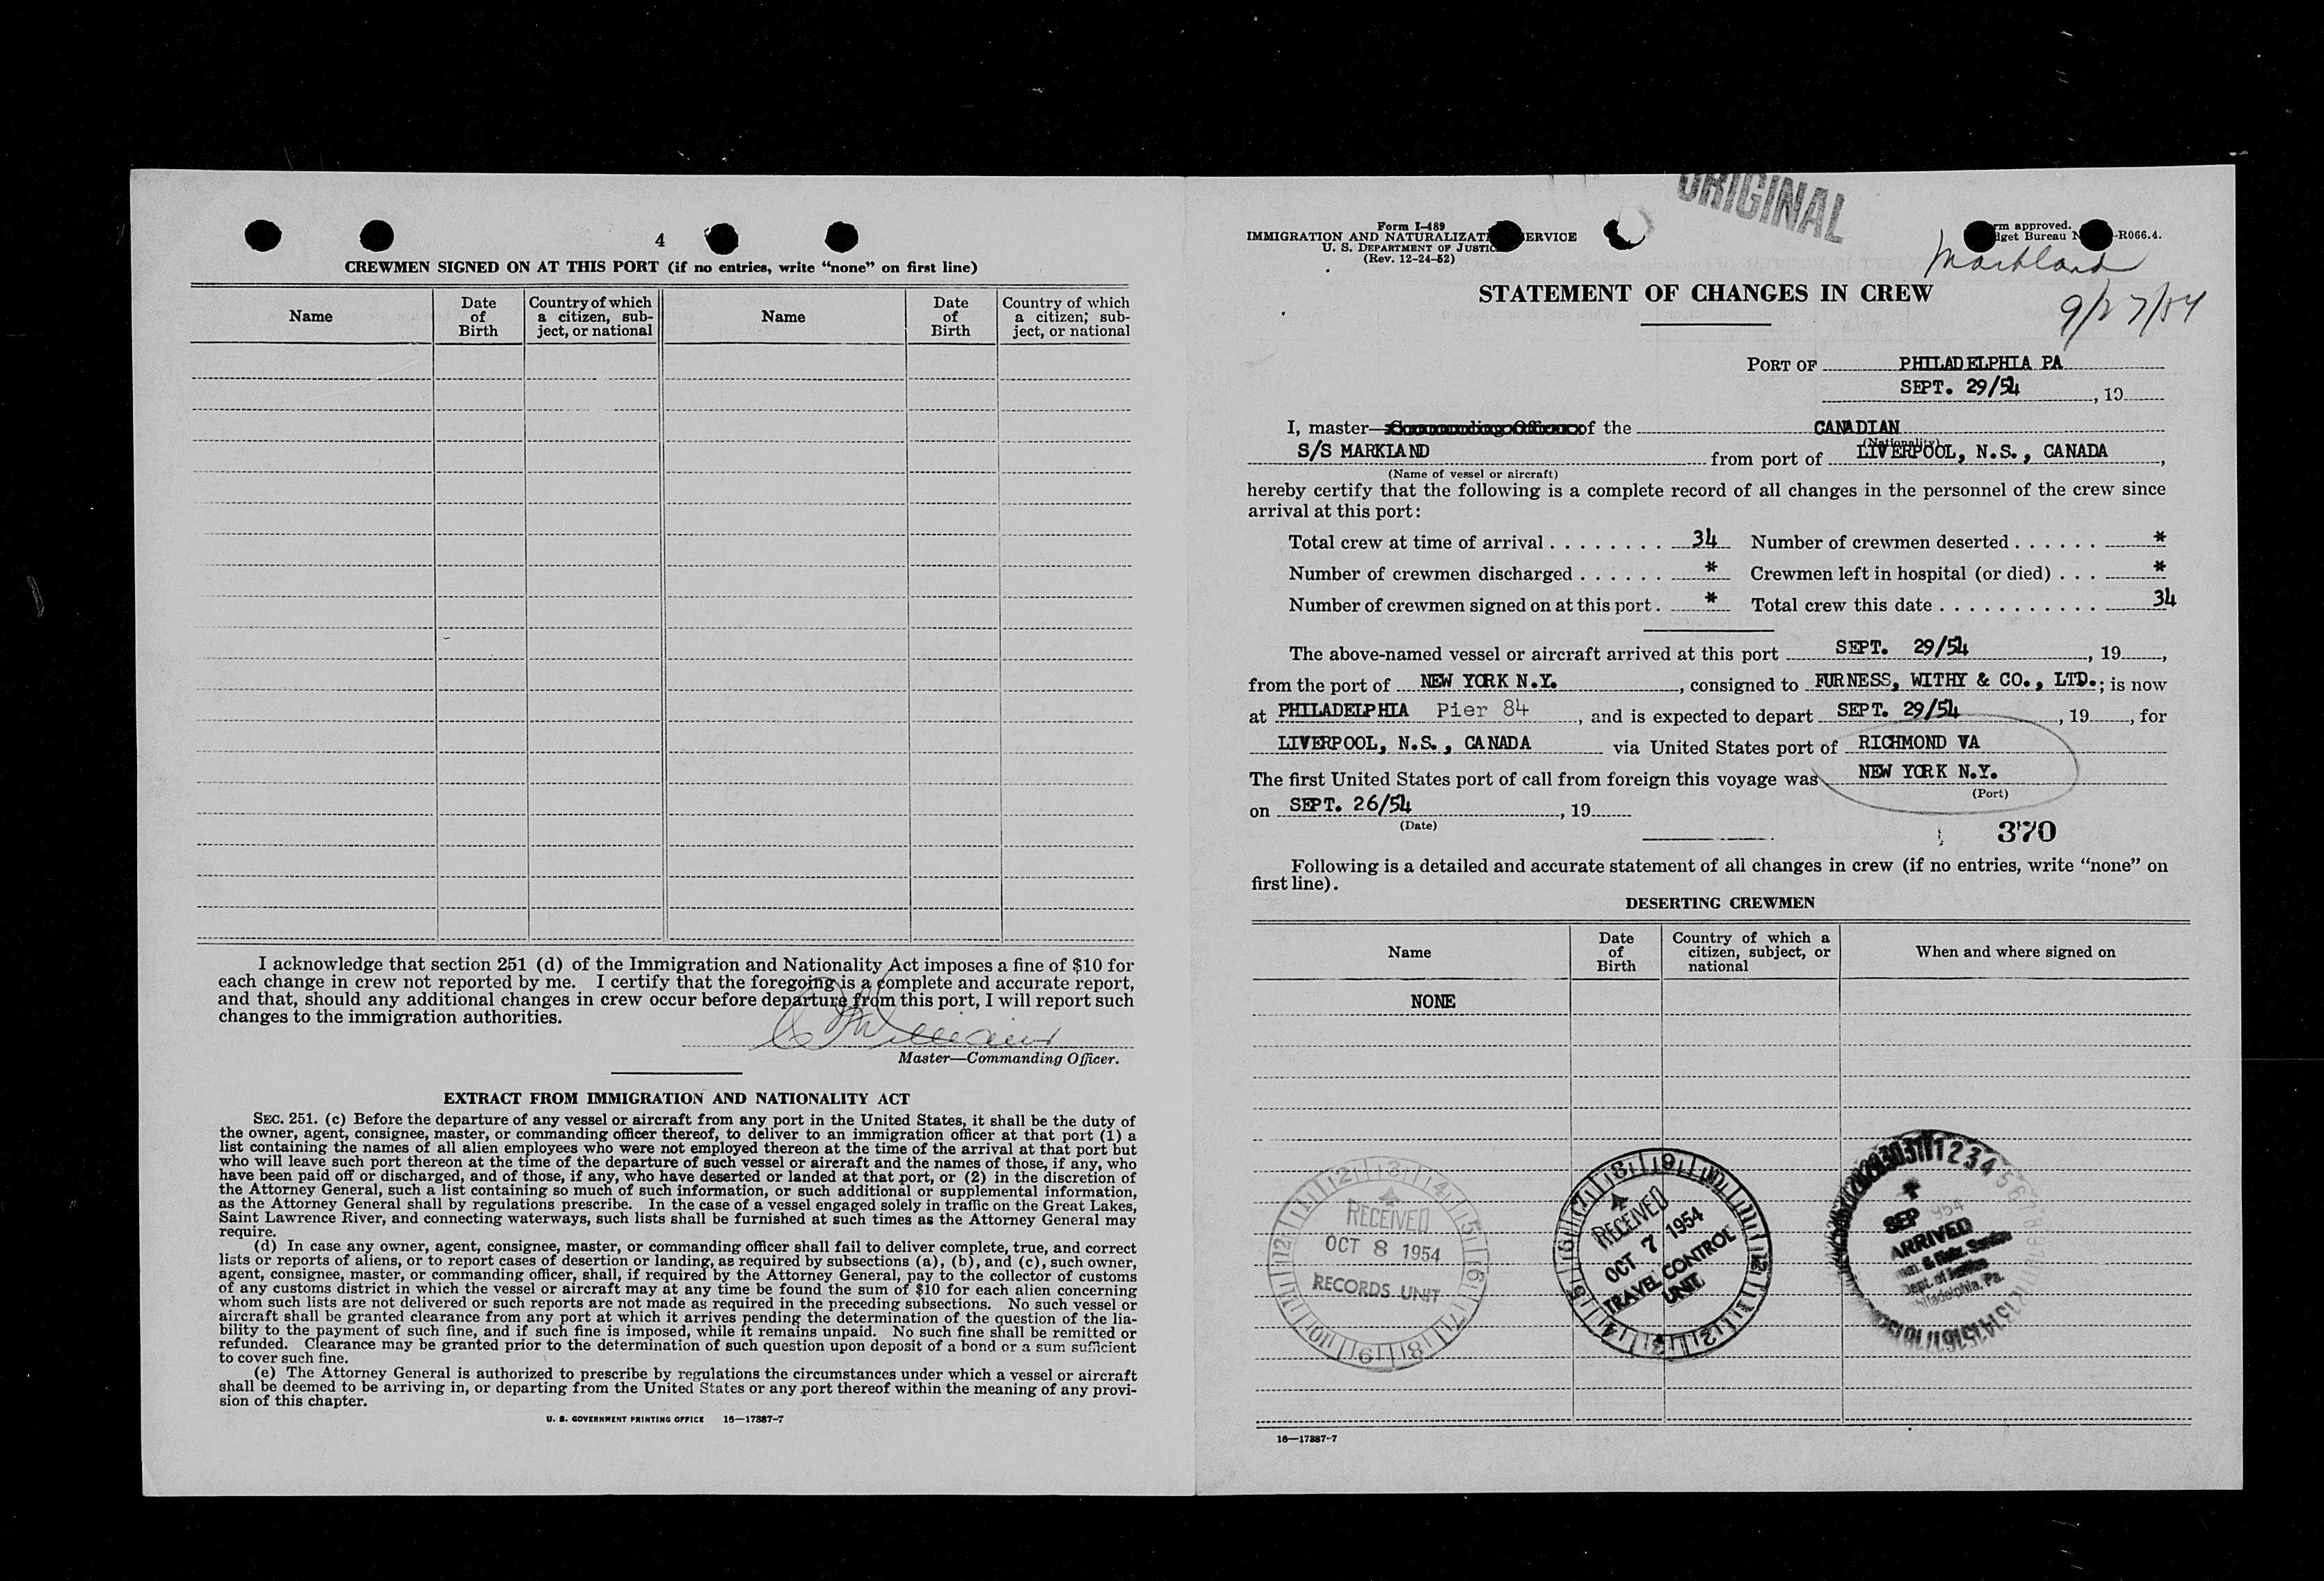 4
CREWMEN SIGNED ON AT THIS PORT (if no entries, write “none” on first line)
Name
Date of Birth
Country of which a citizen, subject, or national
Name
Date of Birth
Country of which a citizen; subject, or national
I acknowledge that section 251 (d) of the Immigration and Nationality Act imposes a fine of $10 for
each change in crew not reported by me. I certify that the foregoing is a complete and accurate report,
and that, should any additional changes in crew occur before departure from this port, I will report such
changes to the immigration authorities.
Master—Commanding Officer.
EXTRACT FROM IMMIGRATION AND NATIONALITY ACT
SEC. 251. (c) Before the departure of any vessel or aircraft from any port in the United States, it shall be the duty of
the owner, agent, consignee, master, or commanding officer thereof, to deliver to an immigration officer at that port (1) a
list containing the names of all alien employees who were not employed thereon at the time of the arrival at that port but
who will leave such port thereon at the time of the departure of such vessel or aircraft and the names of those, if any, who
have been paid off or discharged, and of those, if any, who have deserted or landed at that port, or (2) in the discretion of
the Attorney General, such a list containing so much of such information, or such additional or supplemental information,
as the Attorney General shall by regulations prescribe. In the case of a vessel engaged solely in traffic on the Great Lakes,
Saint Lawrence River, and connecting waterways, such lists shall be furnished at such times as the Attorney General may
require.
(d) In case any owner, agent, consignee, master, or commanding officer shall fail to deliver complete, true, and correct
lists or reports of aliens, or to report cases of desertion or landing, as required by subsections (a), (b), and (c), such owner,
agent, consignee, master, or commanding officer, shall, if required by the Attorney General, pay to the collector of customs
of any customs district in which the vessel or aircraft may at any time be found the sum of $10 for each alien concerning
whom such lists are not delivered or such reports are not made as required in the preceding subsections. No such vessel or
aircraft shall be granted clearance from any port at which it arrives pending the determination of the question of the lia-
bility to the payment of such fine, and if such fine is imposed, while it remains unpaid. No such fine shall be remitted or
refunded. Clearance may be granted prior to the determination of such question upon deposit of a bond or a sum sufficient
to cover such fine.
(e) The Attorney General is authorized to prescribe by regulations the circumstances under which a vessel or aircraft
shall be deemed to be arriving in, or departing from the United States or any port thereof within the meaning of any provi-
sion of this chapter.
U. S. GOVERNMENT PRINTING OFFICE 16—17387-7
ORIGINAL
Form I-489
IMMIGRATION AND NATURALIZATI ERVICE
U. S. DEPARTMENT OF JUSTIC
(Rev. 12-24-52)
rm approved.
get Bureau N -R066.4.
Markland
9/27/54
STATEMENT OF CHANGES IN CREW
PORT OF PHILADELPHIA PA
SEPT. 29/54 , 19
I, master— of the CANADIAN
(Nationality)
S/S MARKLAND from port of LIVERPOOL, N.S., CANADA ,
(Name of vessel or aircraft)
hereby certify that the following is a complete record of all changes in the personnel of the crew since
arrival at this port:
Total crew at time of arrival . . . . . . . . 34 Number of crewmen deserted . . . . . . *
Number of crewmen discharged . . . . . . * Crewmen left in hospital (or died) . . . *
Number of crewmen signed on at this port . * Total crew this date . . . . . . . . . . . . 34
The above-named vessel or aircraft arrived at this port SEPT. 29/54 , 19 ,
from the port of NEW YORK N.Y. , consigned to FURNESS, WITHY & CO., LTD. ; is now
at PHILADELPHIA Pier 84 , and is expected to depart SEPT. 29/54 , 19 , for
LIVERPOOL, N.S., CANADA via United States port of RICHMOND VA
The first United States port of call from foreign this voyage was NEW YORK N.Y.
(Port)
on SEPT. 26/54 , 19
(Date)
370
Following is a detailed and accurate statement of all changes in crew (if no entries, write “none” on
first line).
DESERTING CREWMEN
Name
Date of Birth
Country of which a citizen, subject, or national
When and where signed on
NONE
RECEIVED
OCT 8 1954
RECORDS UNIT
RECEIVED
OCT 7 1954
TRAVEL CONTROL
UNIT
SEP 954
ARRIVED
Imm. & Natz. Service
Dept. of Justice
Philadelphia, Pa.
16—17387-7